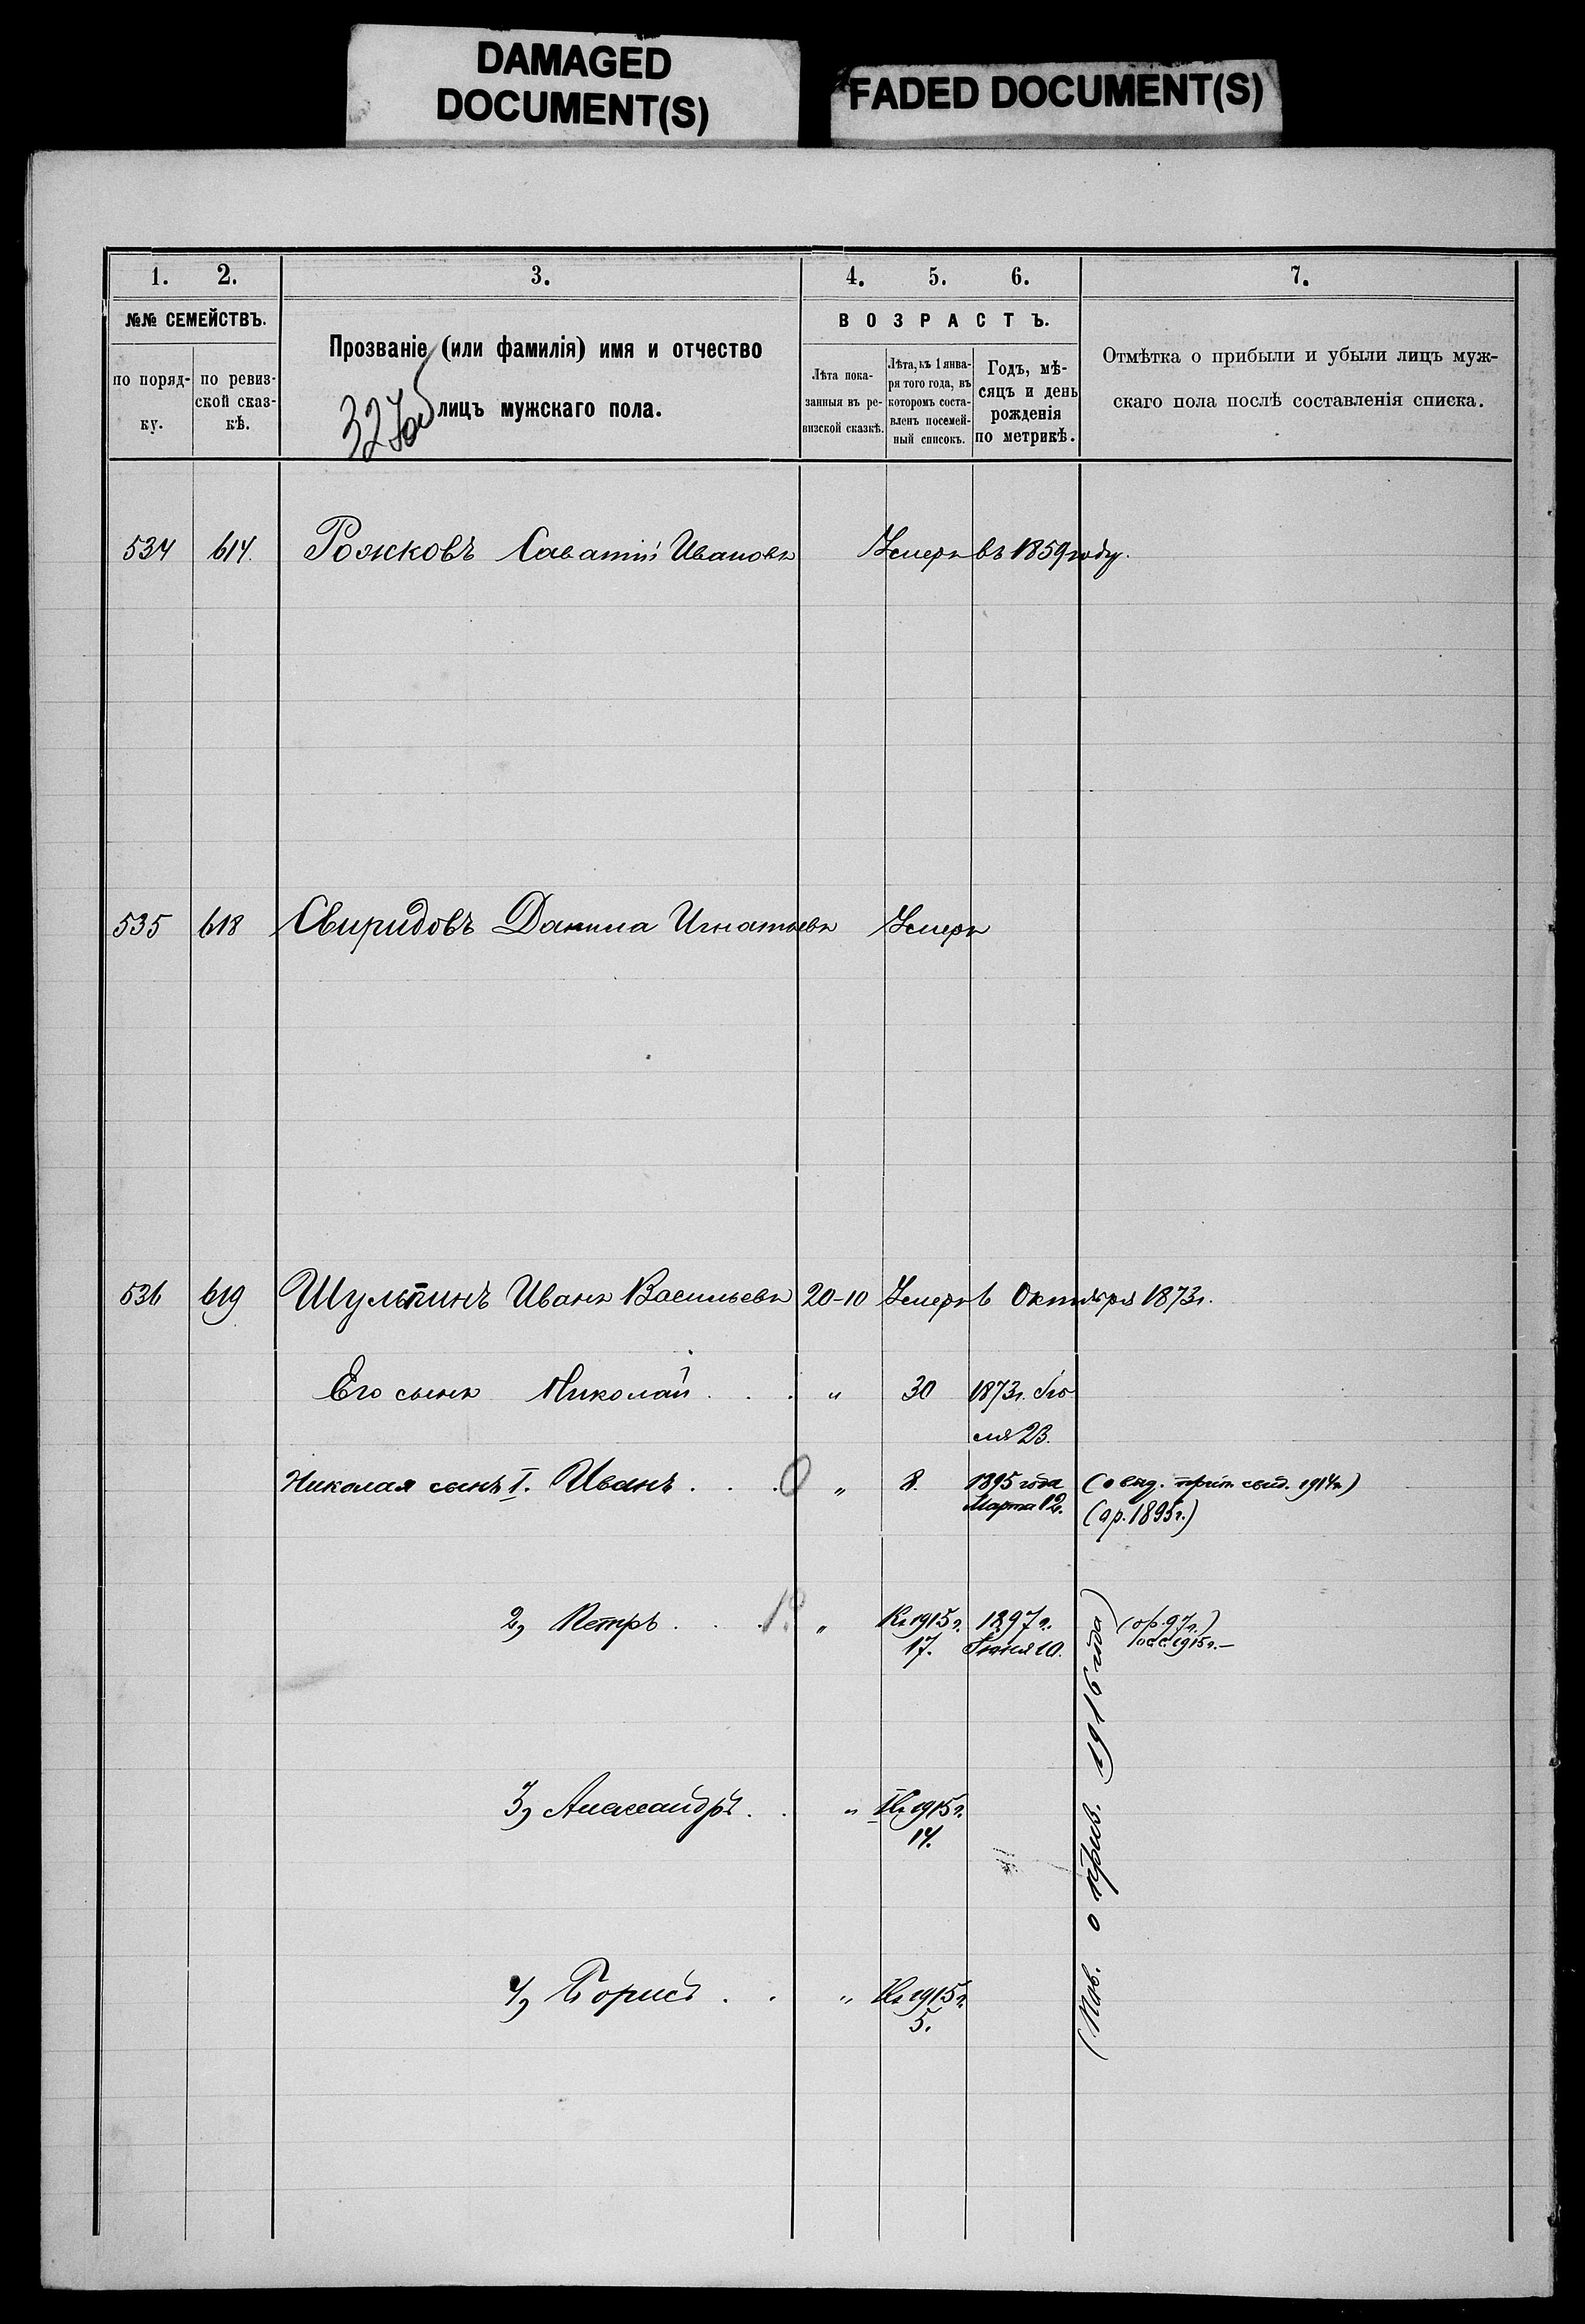 DAMAGED
DOCUMENT(S)
FADED DOCUMENT(S)
1. 2. 3. 4. 5. 6. 7.
№№ СЕМЕЙСТВЪ.
по поряд-
ку.
по ревиз-
ской сказ-
кѣ.
Прозваніе (или фамилія) имя и отчество
лицъ мужскаго пола.
327об
ВОЗРАСТЪ.
Лѣта пока-
занныя въ ре-
визской сказкѣ.
Лѣта, къ 1 янва-
ря того года, въ
которомъ соста-
вленъ посемей-
ный списокъ.
Годъ, мѣ-
сяцъ и день
рожденія
по метрикѣ.
Отмѣтка о прибыли и убыли лицъ муж-
скаго пола послѣ составленія списка.
534 614. Рожковъ Саватій Ивановъ Умеръ въ 1859 году.
535 618 Свиридовъ Данила Игнатьевъ Умеръ
536 619 Шульпинъ Иванъ Васильевъ 20-10 Умеръ 6 Октября 1873г.
Его сынъ Николай . . . " 30 1873г. Ію-
ля 23.
Николая сынъ 1. Иванъ . . . 0 " 8. 1895 года
Марта 12.
(о выд. прип. свид. 1914г)
(ар. 1895г.)
2, Петръ . . . " Къ 1915г.
17.
1897г.
Іюня 10.
(ар. 97г.)
1915г.-
3, Александръ . . " Къ 1915г.
14.
4, Борисъ . . " Къ 1915г.
5.
о прив. 1916 года)